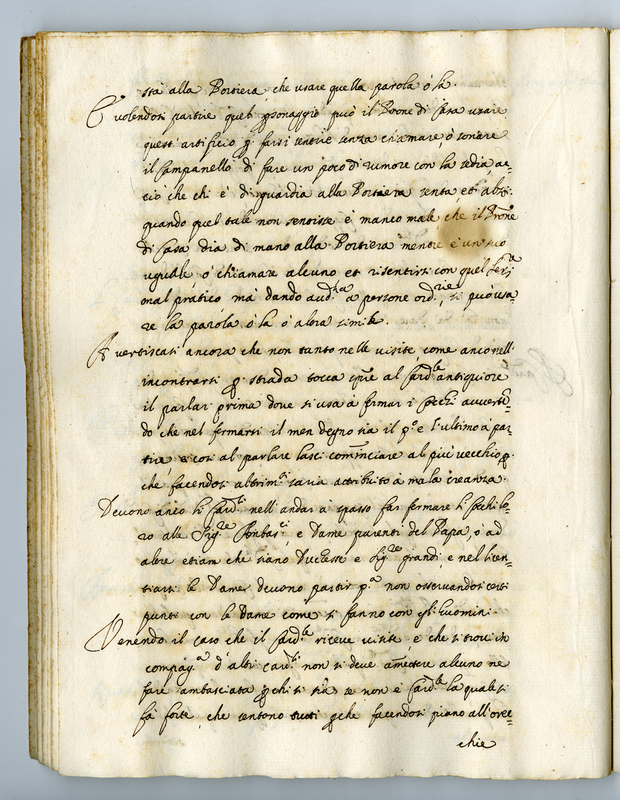 stà alla Portiera, che usare quella parola ò là.
E volendosi partire quel personaggio può il Prone di Casa usare
questi artificio p farsi sentire senza chiamare, ò sonare
il Campanello di fare un poco di rumore con la sedia, ac=
ciò che chi è di guardia alla Portiera senta, et alzi:
quando quel tale non sentisse è manco male che il Prone
di Casa dia di mano alla Portiera mentre è un suo
uguale ò chiamare alcuno et risentirsi con quel
onal pratico mà dando aud.za a persone ord.rie, si può usa=
re la parola ò là ò altra simile.
Avertiscasi ancora che non tanto nelle visite, come anco nell
incontrarsi p strada tocca al Card.le antiquiore
il parlar prima dove si usa à fermar i Cocchi avverten=
do che nel fermarsi il men degno sia il p.o e l'ultimo a par=
tire, e così al parlare lasci cominciare al più vecchio p
che facendosi altrim.ti saria attribuito à mala creanza.
Devono anco li Card.li nell'andar à spasso far fermare li Cocchi lo=
ro alle Sig.re Ambas.ci, e Dame parenti del Papa, ò ad
altre etiam che siano Duchesse e Sig.re grandi, e nel licen=
tiarsi le Dame devono partir p.a non osservandosi certi
punti con le Dame come si fanno con gl'Huomini.
Venendo il caso che il Card.le riceve visite, e che si trovi in
compag.a d'altri Card.li non si deve ametere alcuno ne
fare ambasciata pchi si sia se non è Card.le la quale si
fà forte, che sentono tutti pche facendosi piano all'orec=
chie